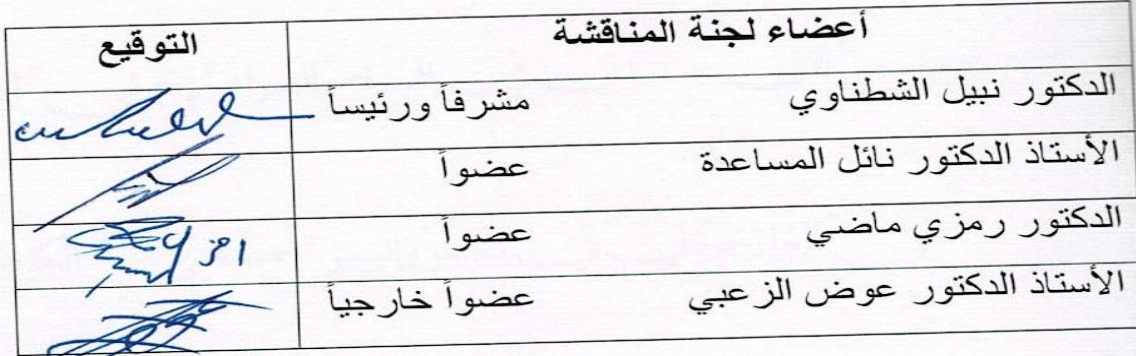 أعضاء لجنة المناقشة التوقيع
الدكتور نبيل الشطناوي مشرفاً ورئيساً
الأستاذ الدكتور نائل المساعدة عضواً
الدكتور رمزي ماضي عضواً
الأستاذ الدكتور عوض الزعبي عضواً خارجياً